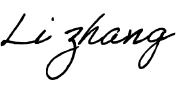 Li zhang